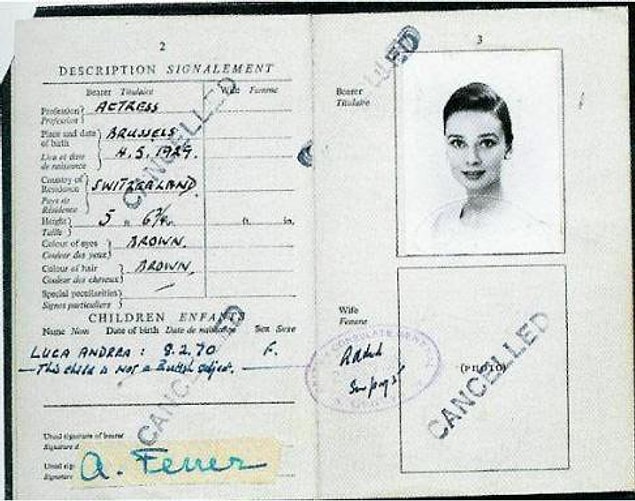 2
DESCRIPTION SIGNALEMENT
Bearer Titulaire
Wife Femme
Profession
Profession
ACTRESS
Place and date of birth
Lieu et date de naissance
BRUSSELS
4.5.1929.
Country of Residence
Pays de Résidence
SWITZERLAND
Height
Taille
5 6¾
ft. in.
Colour of eyes
Couleur des yeux
BROWN.
Colour of hair
Couleur des cheveux
BROWN.
Special peculiarities
Signes particuliers
CHILDREN ENFANTS
Name Nom Date of birth Date de naissance Sex Sexe
LUCA ANDREA: 8.2.70 F.
This child is not a British subject.
Usual signature of bearer
Signature
Usual
Signature
A. Ferrer
CANCELLED
CANCELLED
3
Bearer
Titulaire
Wife
Femme
(PHOTO)
CANCELLED